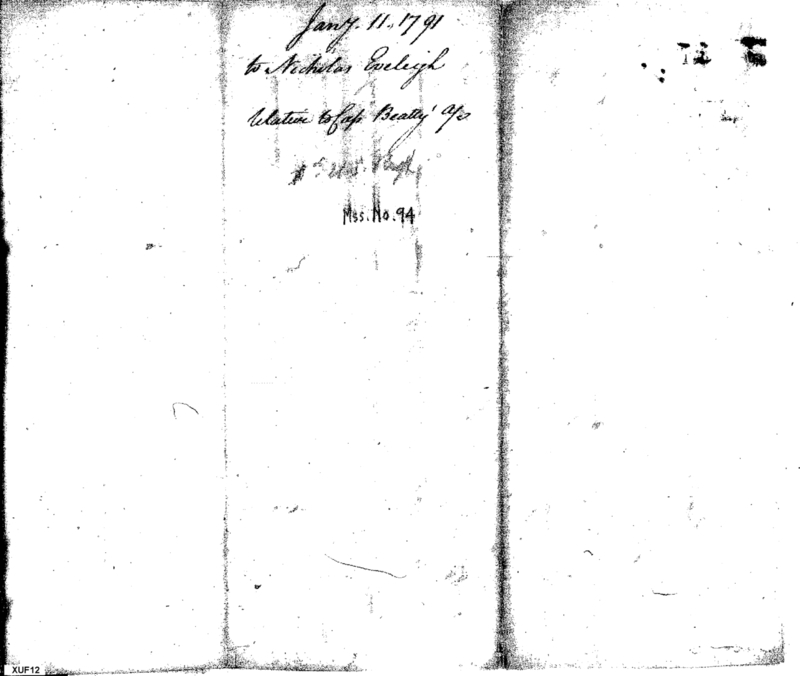 Jany. 11. 1791
to Nicholas Eveleigh
Relative to Cap. Beatty' a/c
Mss. No. 94
XUF12